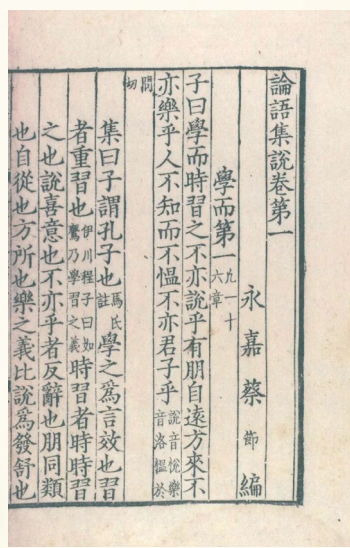 論語集說卷第一
永嘉蔡節編
學而第一凡一十六章
子曰學而時習之不亦說乎有朋自遠方來不
亦樂乎人不知而不慍不亦君子乎說音悅樂音洛慍於
問切
集曰子謂孔子也馬氏註學之爲言效也習
者重習也伊川程子曰如鷹乃學習之義時習者時時習
之也說喜意也不亦乎者反辭也朋同類
也自從也方所也樂之義比說爲發舒也